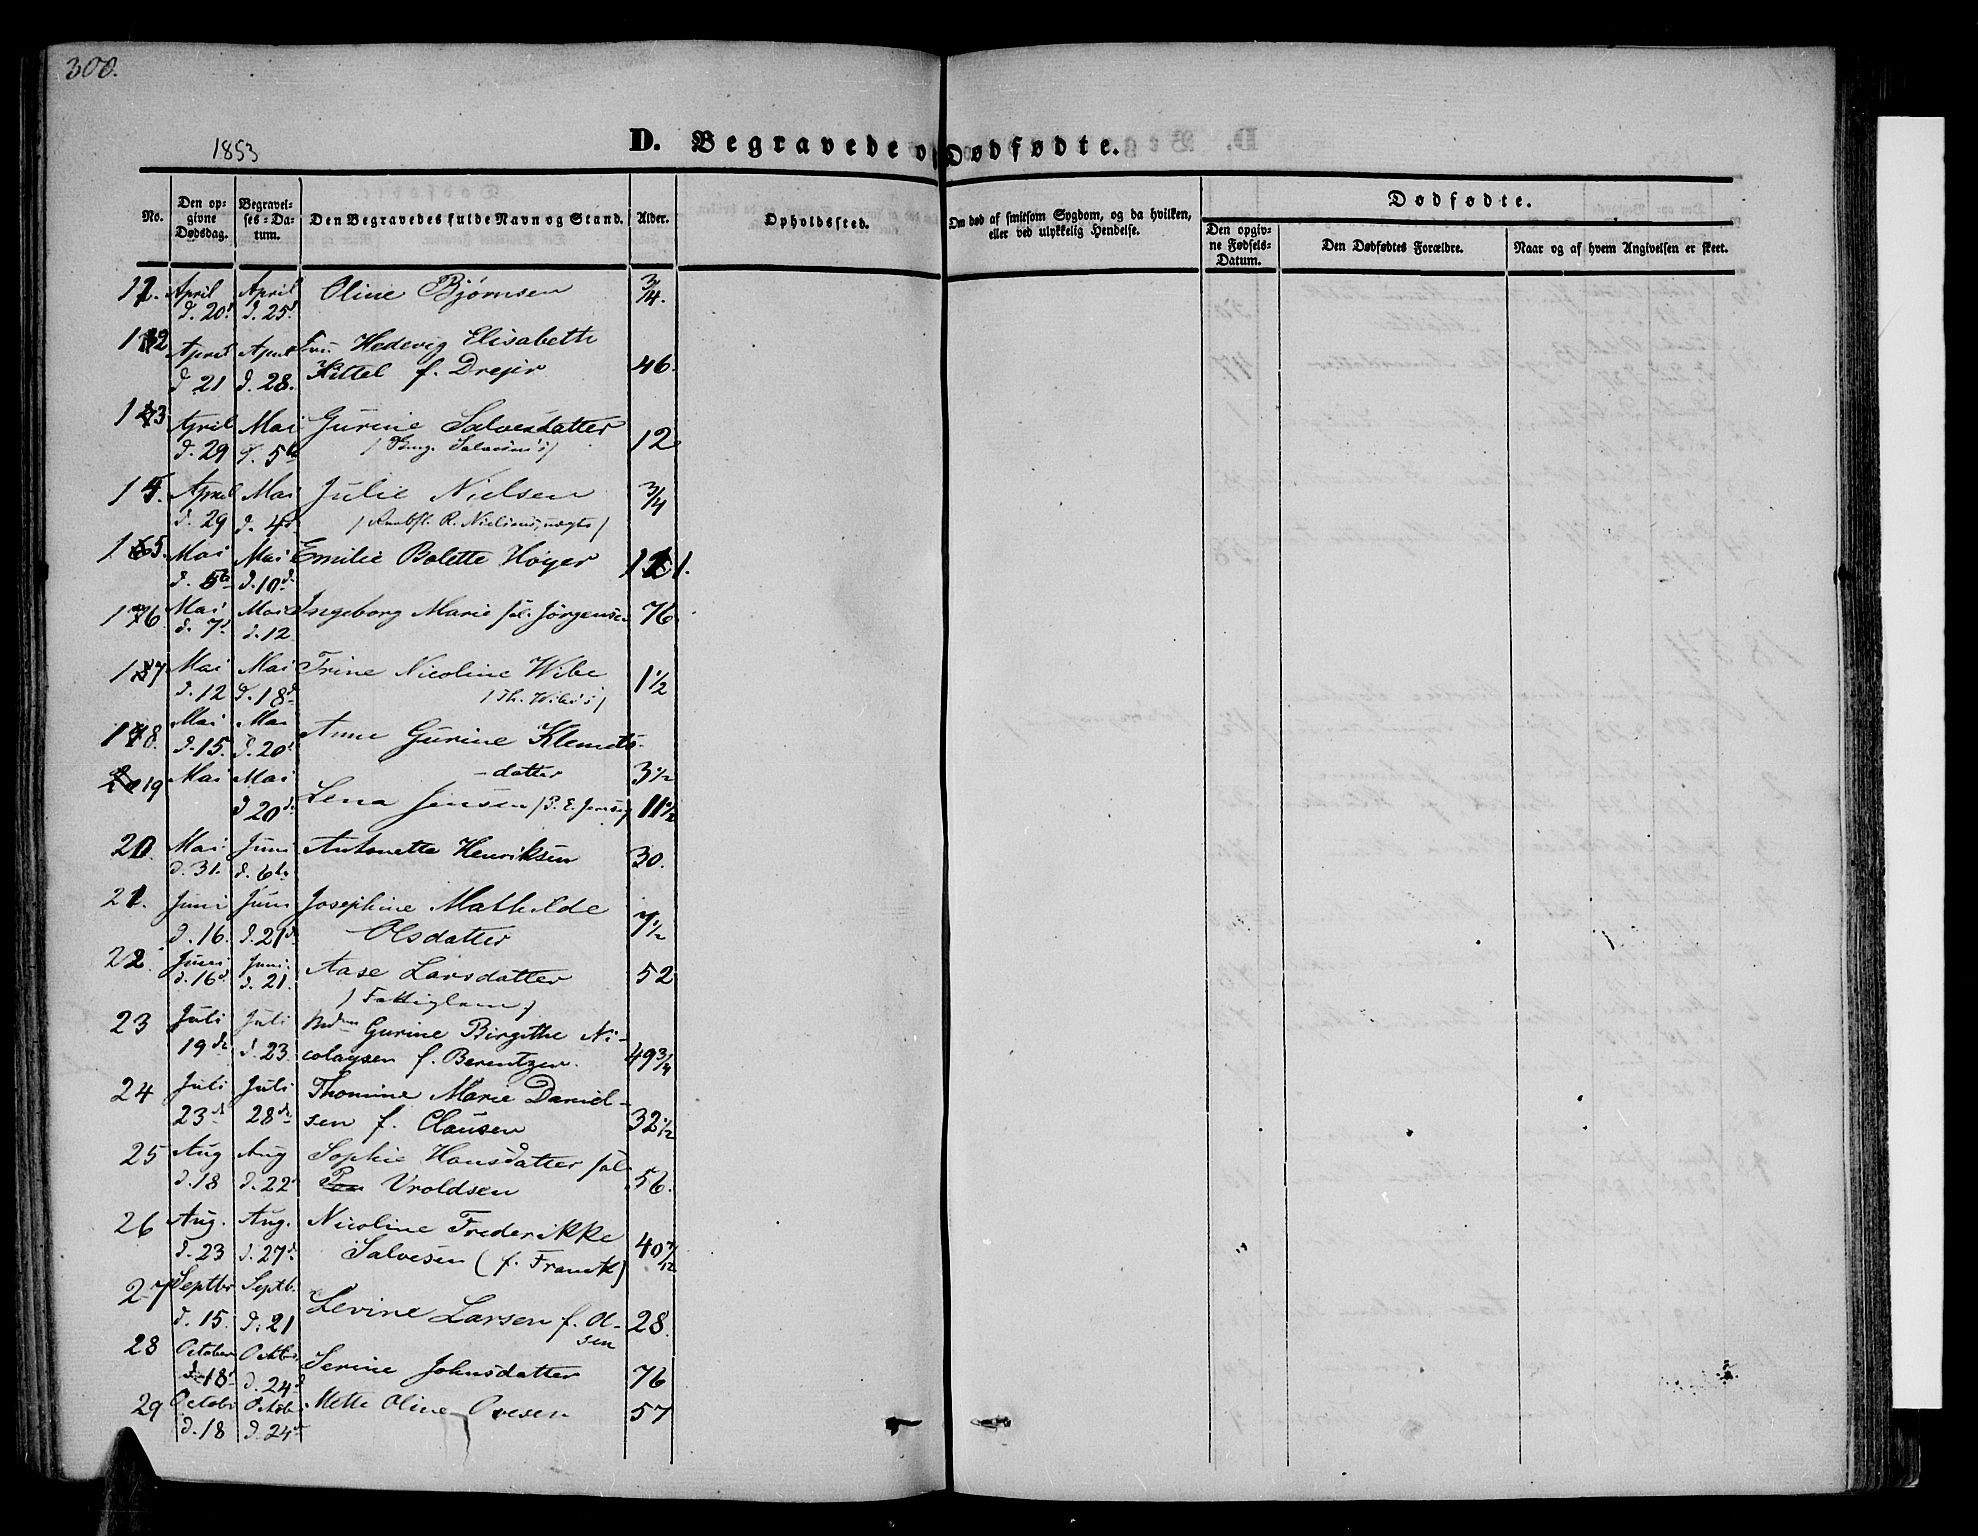 300.
1853
D. Begravede og Dødfødte.
No. Den opgivne Dødsdag. Begravelses-Datum. Den Begravedes fulde Navn og Stand. Alder. Opholdssted. Om død af smitsom Sygdom, og da hvilken, eller ved ulykkelig Hendelse.
Dødfødte.
Den opgivne Fødsels-Datum. Den Dødfødtes Forældre. Naar og af hvem Angivelsen er skeet.
11. April April Oline Bjørnsen 3/4.
d. 20d d. 25d
12 April April Fru Hedevig Elisabeth
d 21 d. 28. Kittel f. Drejer 46.
13 April Mai Gurine Salvesdatter
d. 29 d. 5te Salvesens 12
14. April Mai Julie Nielsen 3/4
d. 29 d. 4d R. Nielsens
15. Mai Mai Emilie Bolette Høyer 11.
d. 5te d. 10d
16 Mai Mai Ingeborg Marie sal. Jörgensen 76
d. 7d d. 12
17 Mai Mai Trine Nicoline Wibe 1 1/2
d. 12 d. 18d /Th. Wibes/
18. Mai Mai Anne Gurine Klemets-
d. 15. d. 20d -datter 3 1/2
19 Mai Mai
d 20d Lena Jensen /P. E. Jensen/ 11 1/2
20. Mai Juni Antonette Henriksen 30.
d. 31. d. 6te
21. Juni Juni Josephine Mathilde 7 1/2
d. 16. d. 21d Olsdatter
22. Juni Juni Aase Larsdatter 52
d. 16d d. 21. / Fattiglem /
23 Juli Juli Mdm Gurine Birgithe Ni-
19de d. 23 colaysen f. Berentzen. 49 3/4
24 Juli Juli Thomine Marie Daniel-
23d 28d sen f. Clausen 32 1/2
25 Aug Aug Sophie Hansdatter sal
d. 18 d. 22d Vroldsen 56.
26 Aug. Aug. Nicoline Frederikke
d. 23 d. 27d Salvesen (f. Franck) 40 7/12
27 Septbr Septb. Levine Larsen f. Ol-
d. 15. d. 21 sen 28.
28 October Octbr. Serine Johnsdatter 76
d. 18d d. 24d
29 Octobr Octobr Mette Oline Ovesen 57
d. 18 d. 24d